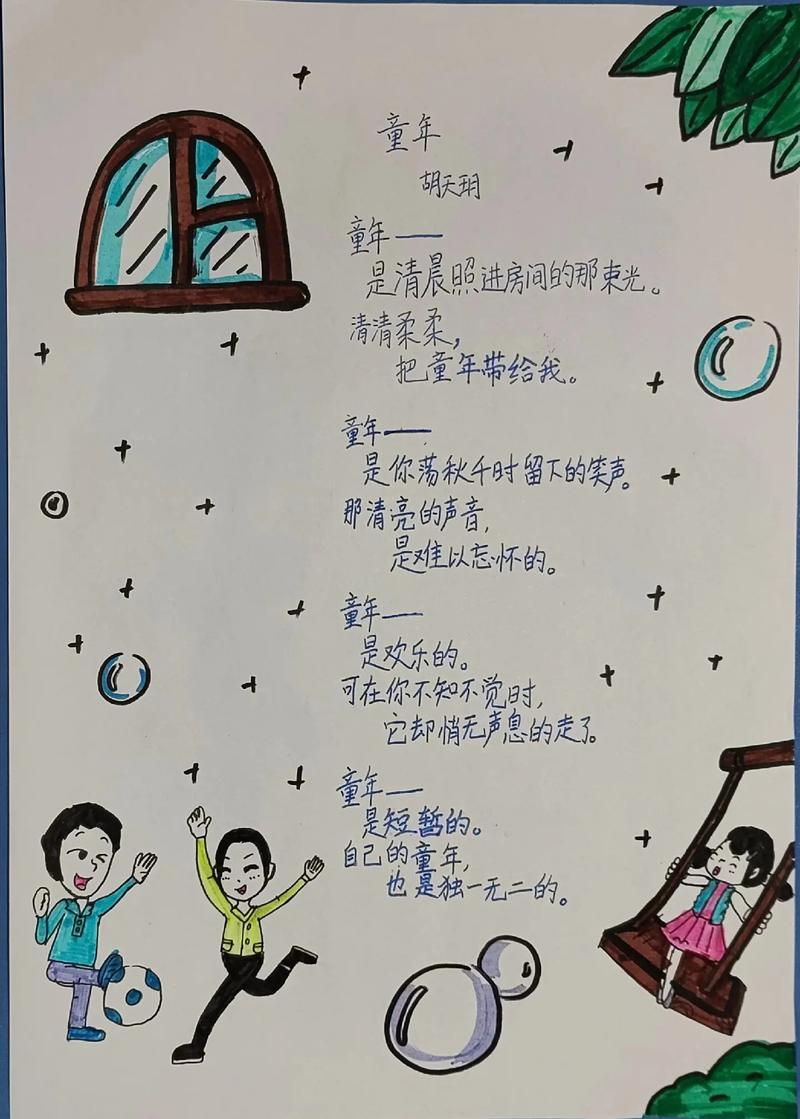 童年
胡天玥
童年——
是清晨照进房间的那束光。
清清柔柔，
把童年带给我。
童年——
是你荡秋千时留下的笑声。
那清亮的声音，
是难以忘怀的。
童年——
是欢乐的。
可在你不知不觉时，
它却悄无声息的走了。
童年——
是短暂的。
自己的童年，
也是独一无二的。